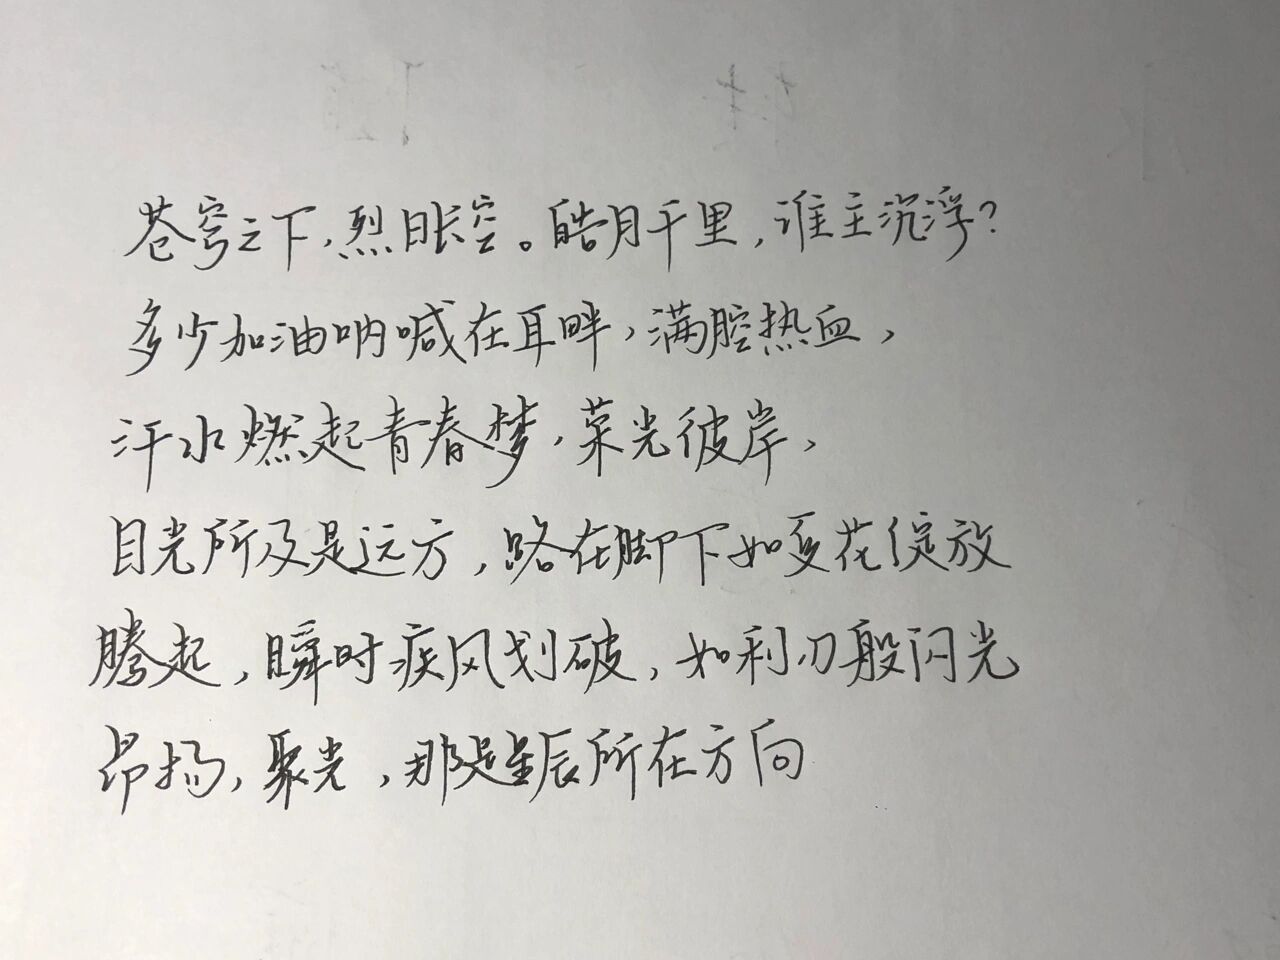 苍穹之下,烈日胀空。皓月千里,谁主沉浮?
多少加油呐喊在耳畔,满腔热血,
汗水燃起青春梦,荣光彼岸,
目光所及是远方,路在脚下如夏花绽放
腾起,瞬时疾风划破,如利刃般闪光
昂扬,聚光,那是星辰所在方向